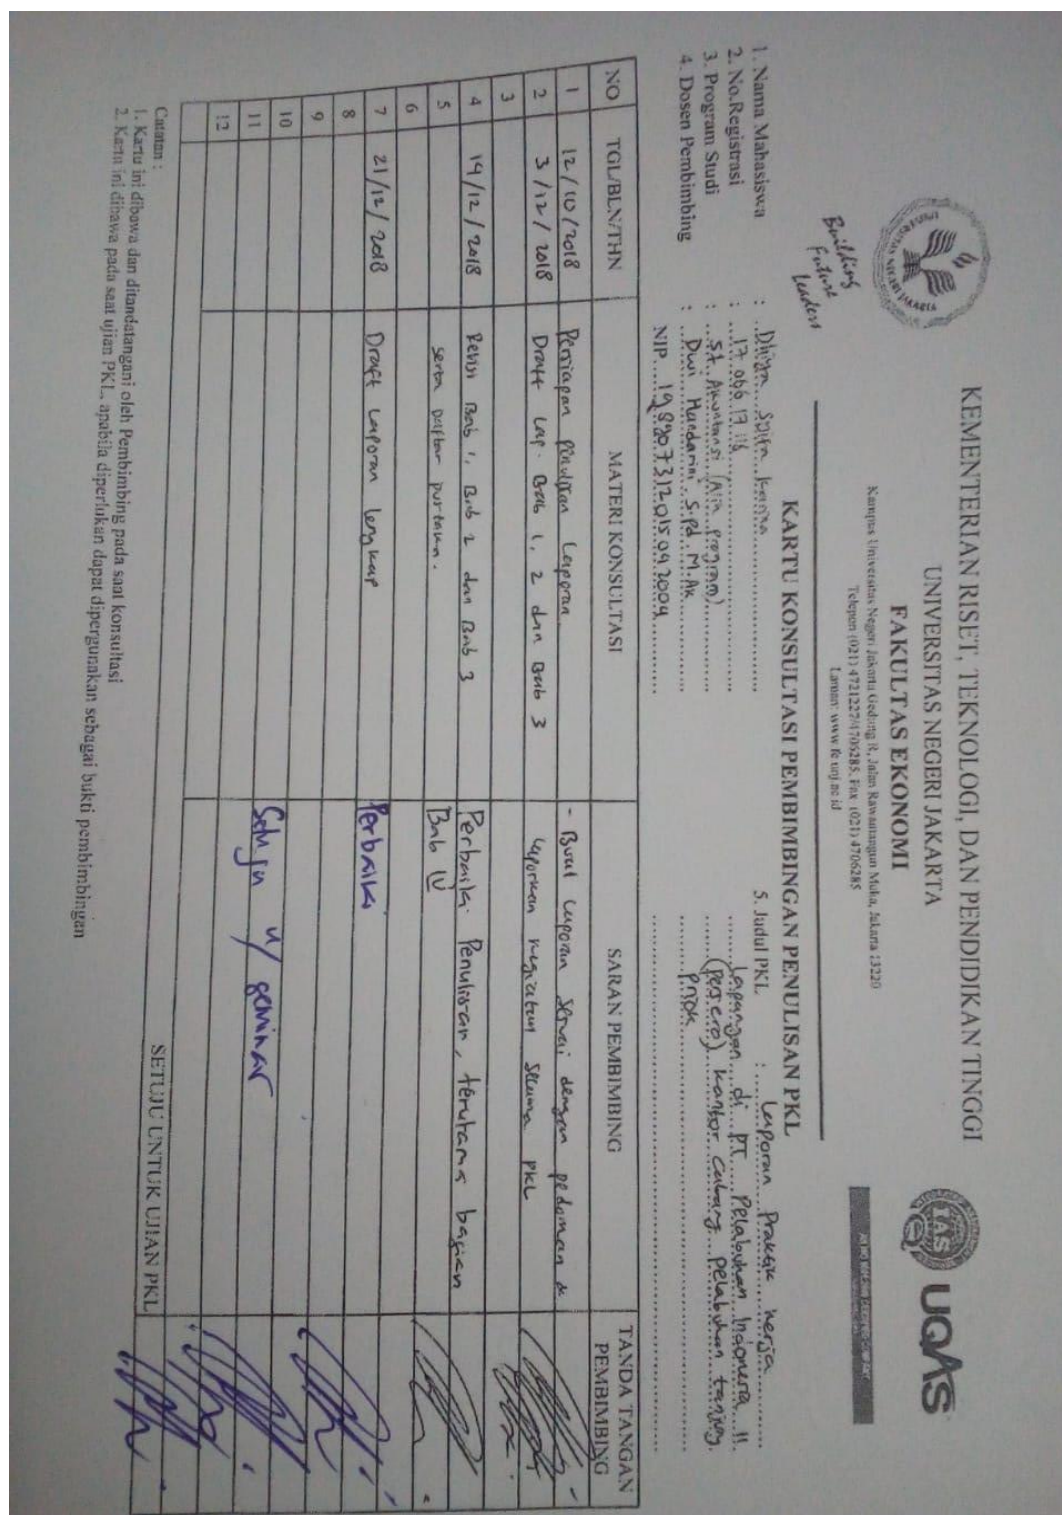 KEMENTERIAN RISET, TEKNOLOGI, DAN PENDIDIKAN TINGGI
UNIVERSITAS NEGERI JAKARTA
FAKULTAS EKONOMI
Kampus Universitas Negeri Jakarta Gedung R, Jalan Rawamangun Muka, Jakarta 13220
Telepon (021) 4721227/4706285, Fax (021) 4706285
Laman: www.fe.unj.ac.id
Building
Future
Leaders
IAS
UQAS
KARTU KONSULTASI PEMBIMBINGAN PENULISAN PKL
1. Nama Mahasiswa :
2. No.Registrasi : 17 066 17 116
3. Program Studi : S1 Akuntansi (Alih program)
4. Dosen Pembimbing : Dwi Handarini, S.Pd, M.Ak
NIP. 198907312015092004
5. Judul PKL : Laporan Praktik Kerja
Lapangan di PT Pelabuhan Indonesia II
(Persero) Kantor Cabang Pelabuhan Tanjung
Priok
NO TGL/BLN/THN MATERI KONSULTASI SARAN PEMBIMBING TANDA TANGAN PEMBIMBING
1 12/10/2018 Persiapan penulisan Laporan - Buat laporan sesuai dengan pedoman &
2 3/12/2018 Draft Lap. Bab 1, 2 dan Bab 3 Laporkan kegiatan selama PKL
3
4 19/12/2018 Revisi Bab 1, Bab 2 dan Bab 3 Perbaiki Penulisan, terutama bagian
5 serta daftar pustaka. Bab IV
6
7 21/12/2018 Draft Laporan lengkap Perbaiki
8
9
10
11 Setuju u/ seminar
12
SETUJU UNTUK UJIAN PKL
Catatan :
1. Kartu ini dibawa dan ditandatangani oleh Pembimbing pada saat konsultasi
2. Kartu ini dibawa pada saat ujian PKL, apabila diperlukan dapat dipergunakan sebagai bukti pembimbingan